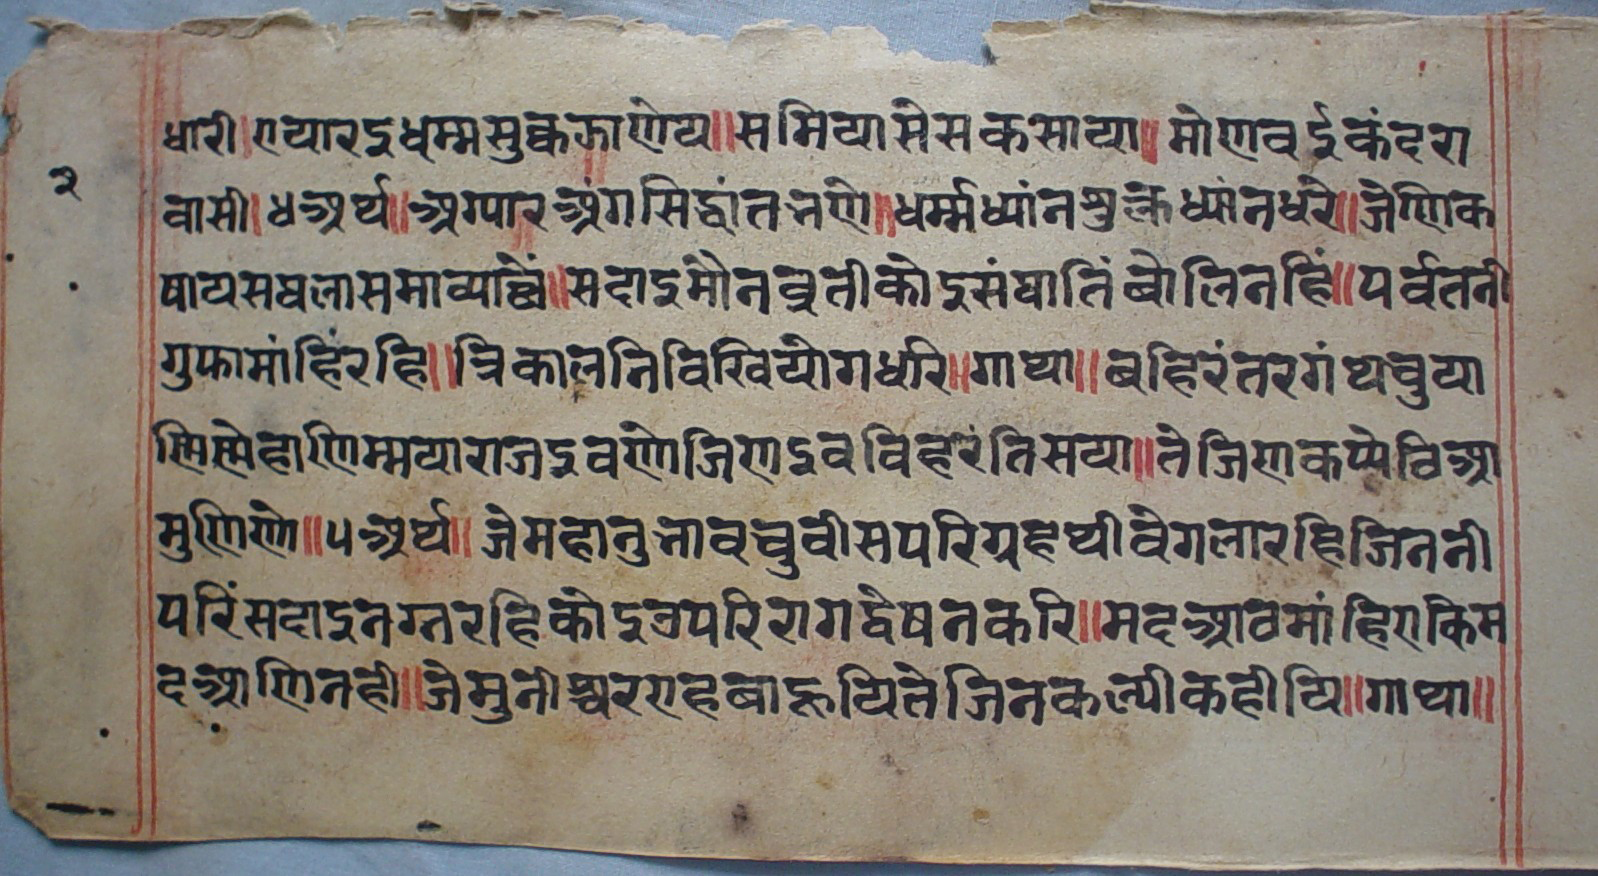 धारी।एयारइधम्मसुक्कझाणेय॥समियासेसकसाया॥मोणवईकंदरा
२
वासी।४अर्थ॥अग्यारअंगसिद्धांतभणे॥धर्म्मध्यांनशुक्लध्यांनधरे॥जेणिक
षायसघलासमाव्याछें॥सदाइमौनव्रतीकोइसंघातिंबोलिनहिं॥पर्वतनी
गुफामांहिंरहि॥त्रिकालनिविखियोगधरि॥गाथा॥बहिरंतरगंथचुया
णिणेहाणिम्मयाराजइवणोजिणइवविहरंतिसया॥तेजिणकप्पेठिआ
मुणिणो॥५अर्थ॥जेमहानुभावचुवीसपरिग्रहथीवेगलारहिजिननी
परिंसदाइनग्नरहिकोइउपरिरागद्वेषनकरि॥मदआठमांहिएकिम
दआणिनही॥जेमुनीश्वरएहबाहूयितेजिनकल्पीकहीयि॥गाथा॥